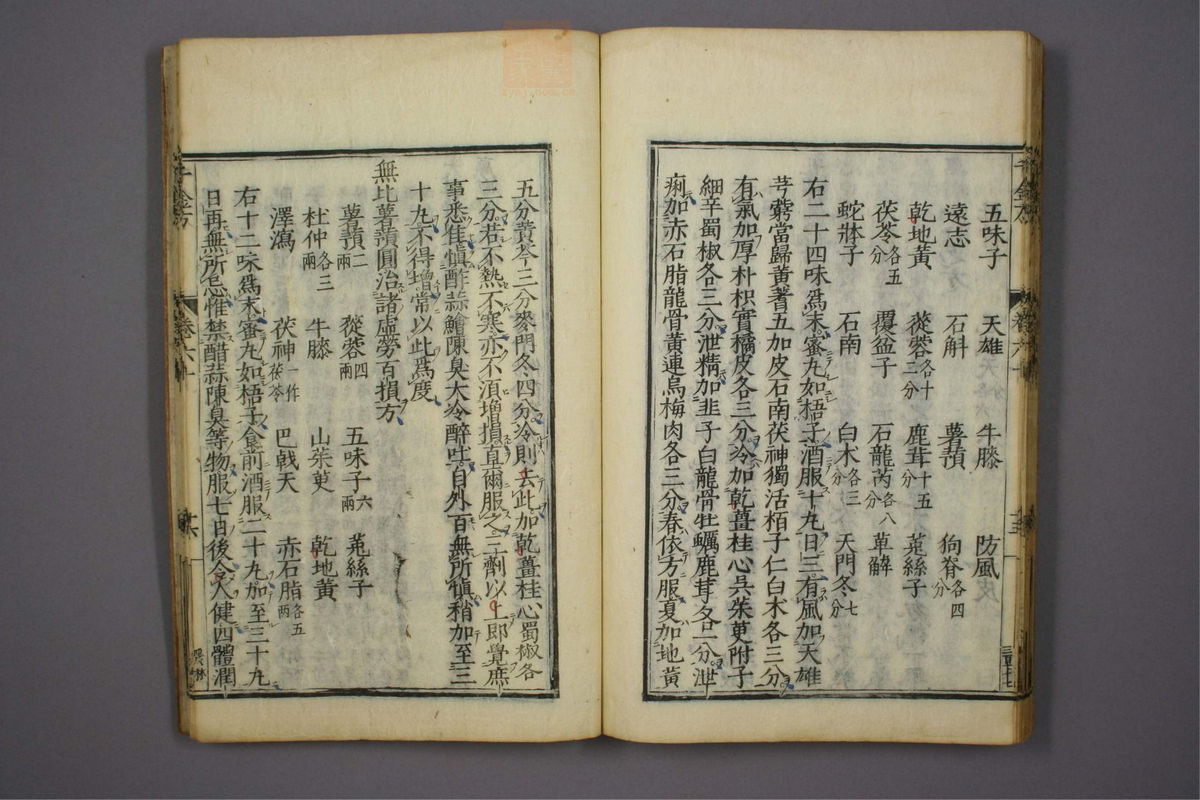 五味子 天雄 牛膝 防風
遠志 石斛 薯蕷 狗脊各四分
乾地黃 蓯蓉各十二分 鹿茸十五分 菟絲子
茯苓各五分 覆盆子 石龍芮各八分 萆薢
蛇牀子 石南 白朮各三分 天門冬七分
右二十四味爲末蜜丸如梧子酒服十丸日三有風加天雄
芎藭當歸黃蓍五加皮石南茯神獨活栢子仁白朮各三分
有氣加厚朴枳實橘皮各三分冷加乾薑桂心吳茱萸附子
細辛蜀椒各三分泄精加韭子白龍骨牡蠣鹿茸各二分泄
痢加赤石脂龍骨黃連烏梅肉各三分春依方服夏加地黃
五分黃芩三分麥門冬四分冷則去此加乾薑桂心蜀椒各
三分若不熱不寒亦不須增損直爾服之三劑以上即覺庶
事悉佳愼酢蒜鱠陳臭大冷醉吐自外百無所愼稍加至三
十丸不得增常以此爲度
無比薯蕷圓治諸虛勞百損方
薯蕷二兩 蓯蓉四兩 五味子六兩 菟絲子
杜仲各三兩 牛膝 山茱萸 乾地黃
澤瀉 茯神一作茯苓 巴戟天 赤石脂各五兩
右十二味爲末蜜丸如梧子食前酒服二十丸加至三十丸
日再無所忌惟禁醋蒜陳臭等物服七日後令人健四體潤
千金方 卷六十